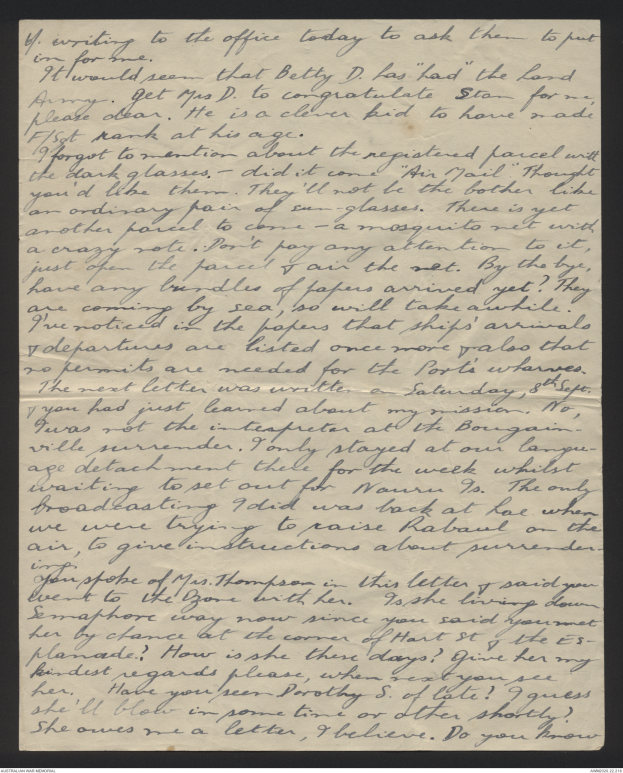 6/. writing to the office today to ask them to put
in for me.
It would seem that Betty D. has "had" the Land
Army. Get Mrs D. to congratulate Stan for me,
please dear. He is a clever kid to have made
F/Sgt rank at his age.
I forgot to mention about the registered parcel with
the dark glasses, – did it come "Air Mail" Thought
you'd like them. They'll not be the bother like
an ordinary pair of sun-glasses. There is yet
another parcel to come – a mosquito net with
a crazy note. Don't pay any attention to it,
just open the parcel & air the net. By the bye,
have any bundles of papers arrived yet? They
are coming by sea, so will take awhile.
I've noticed in the papers that ships' arrivals
& departures are listed once more & also that
no permits are needed for the Port's wharves.
The next letter was written on Saturday, 8th Sept.
& you had just learned about my mission. No,
I was not the interpreter at the Bougain-
ville surrender. I only stayed at our langu-
age detachment there for the week whilst
waiting to set out for Nauru Is. The only
broadcasting I did was back at Lae when
we were trying to raise Rabaul on the
air, to give instructions about surrender-
ing.
You spoke of Mrs. Thompson in this letter & said you
went to the Ozone with her. Is she living down
Semaphore way now since you said you met
her by chance at the corner of Hart St & the Es-
planade? How is she these days? Give her my
kindest regards please, when next you see
her. Have you seen Dorothy S. of late? I guess
she'll blow in some time or other shortly?
She owes me a letter, I believe. Do you know
AUSTRALIAN WAR MEMORIAL